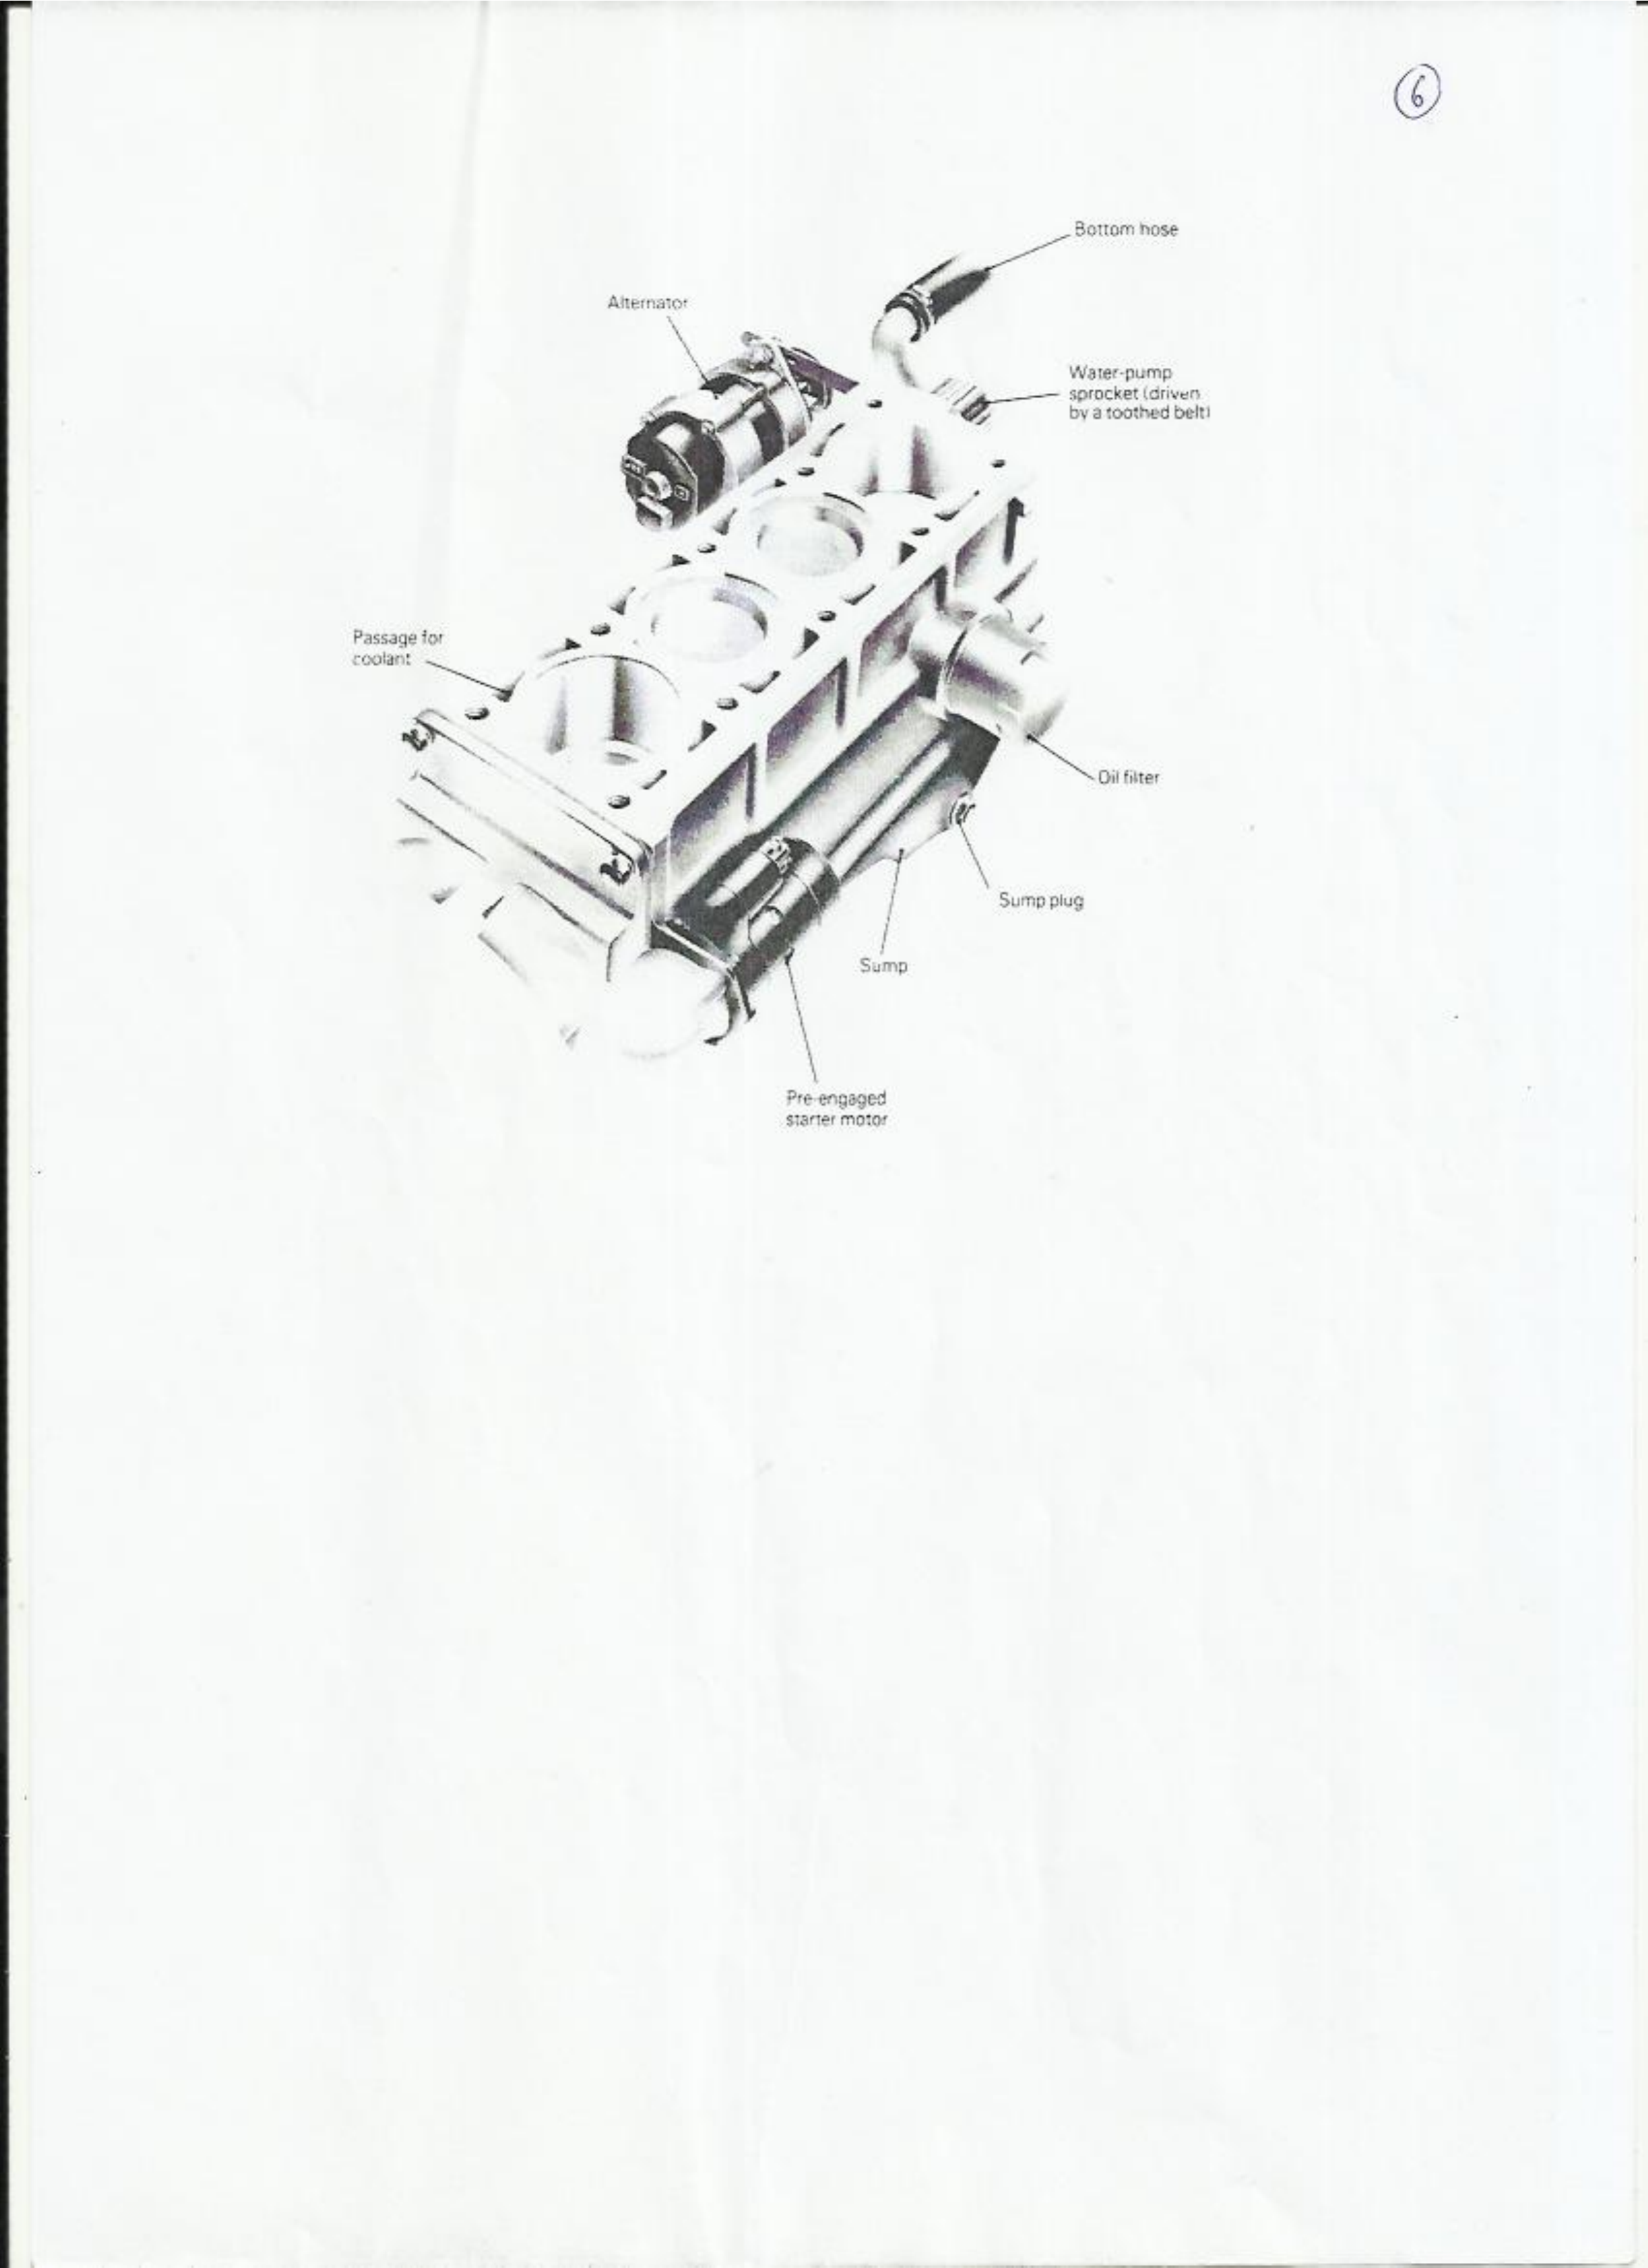 6
Bottom hose
Alternator
Water-pump
sprocket (driven
by a toothed belt)
Passage for
coolant
Oil filter
Sump plug
Sump
Pre-engaged
starter motor